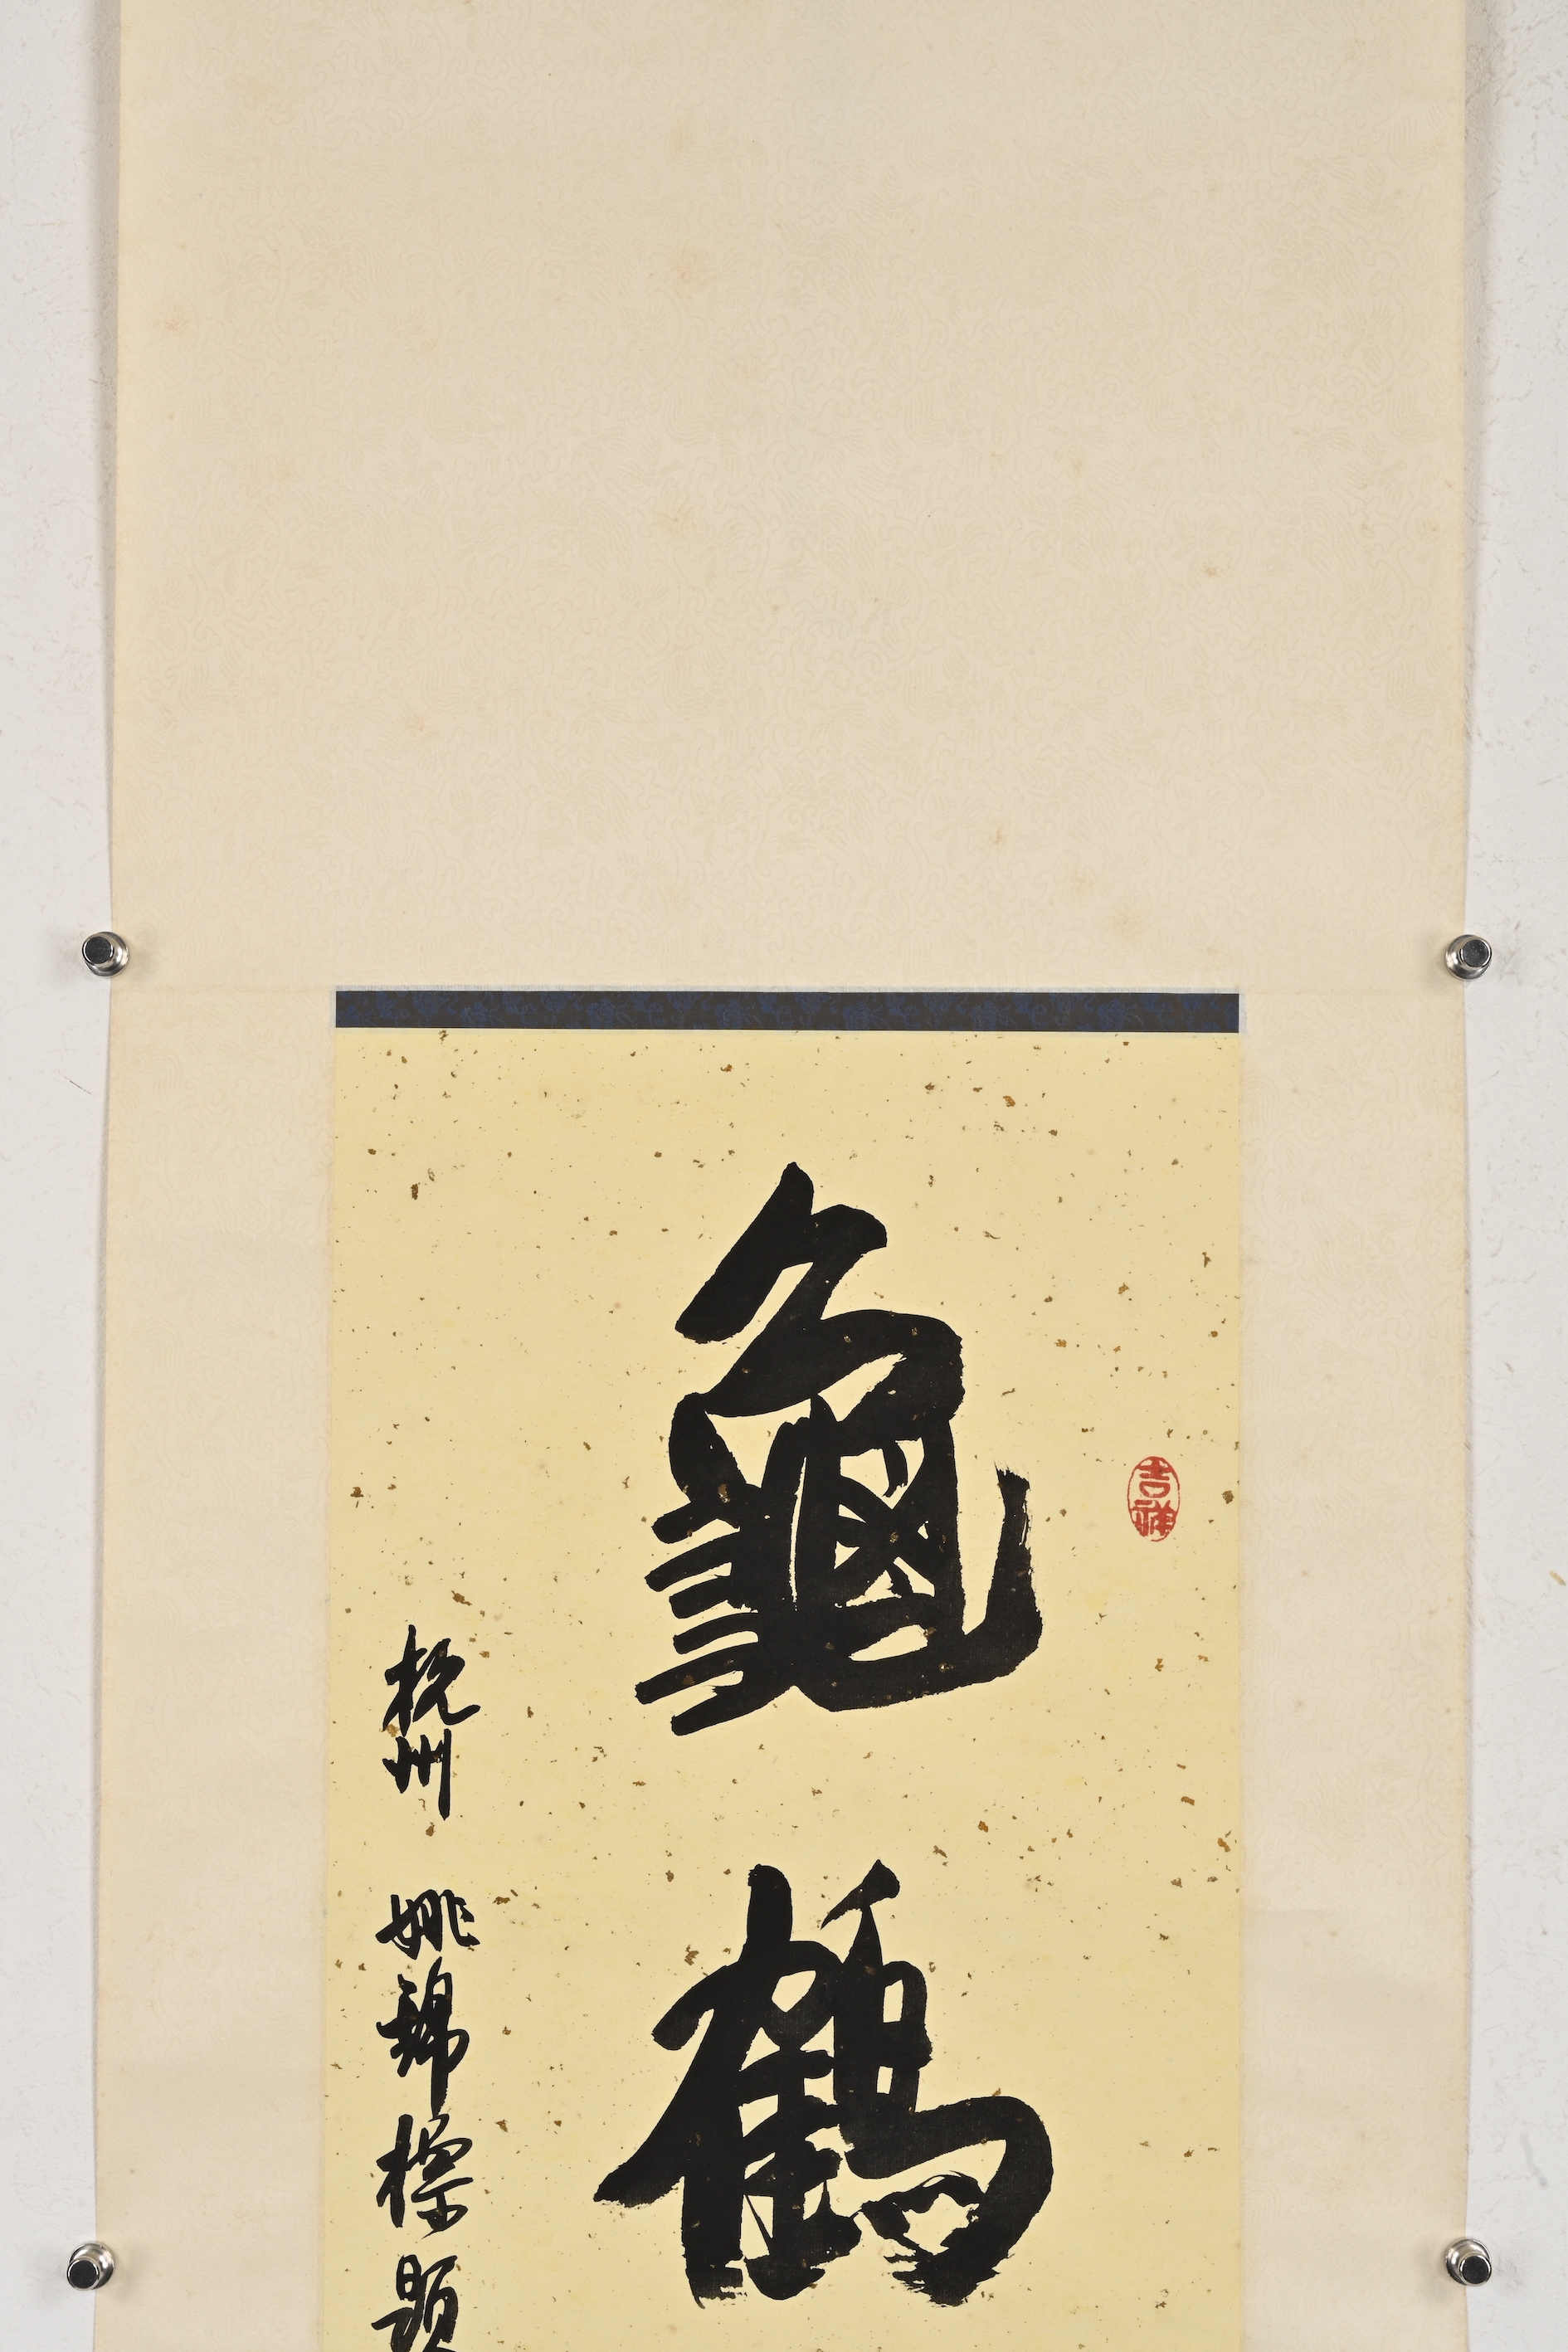 吉祥
龜鶴
杭州 姚錦標題